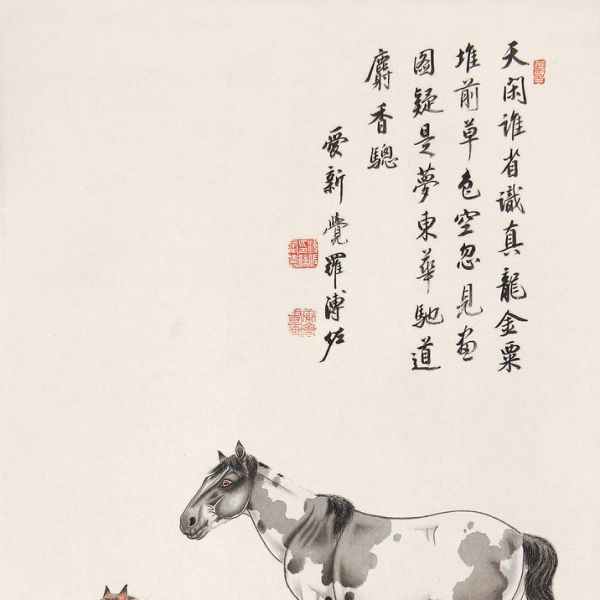 天闲谁省識真龍金粟
堆前草色空忽見畫
圖疑是夢東華馳道
麝香驄
愛新覺羅溥佐